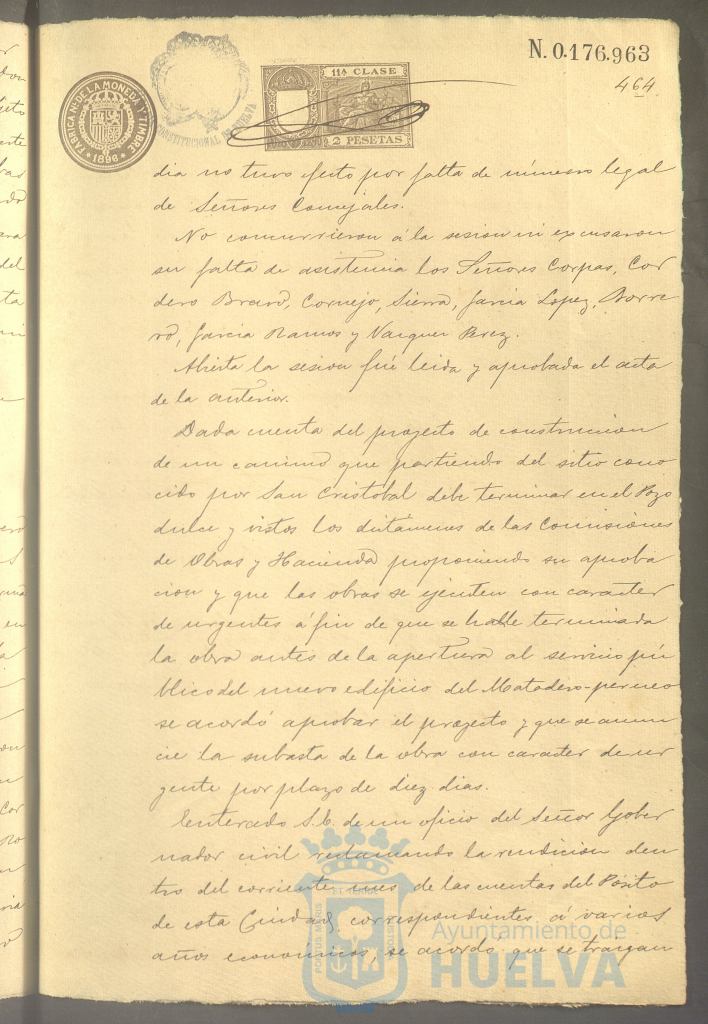 N. 0.176.963
464
FABRICA NAL DE LA MONEDA Y TIMBRE
1896
CONSTITUCIONAL DE HUELVA
11ª CLASE
2 PESETAS
dia no tuvo efecto por falta de número legal
de Señores Concejales.
No concurrieron á la sesion ni excusaron
su falta de asistencia los Señores Corpas, Cor
dero Bravo, Cornejo, Sierra, Garcia Lopez, Borre
ro, Garcia Ramos y Vazquez Perez.
Abierta la sesion fué leida y aprobada el acta
de la anterior.
Dada cuenta del proyecto de construccion
de un camino que partiendo del sitio cono
cido por San Cristobal debe terminar en el Pozo
dulce y vistos los dictámenes de las Comisiones
de Obras y Hacienda proponiendo su aproba
cion y que las obras se ejecuten con caracter
de urgentes á fin de que se halle terminada
la obra antes de la apertura al servicio pú
blico del nuevo edificio del Matadero-perneo
se acordó aprobar el proyecto y que se anun
cie la subasta de la obra con caracter de ur
gente por plazo de diez dias.
Enterado S.E. de un oficio del Señor Gober
nador civil reclamando la rendicion den
tro del corriente mes de las cuentas del Pósito
de esta Ciudad, correspondientes á varios
años economicos, se acordó que se traigan
PORTUS MARIS
ET TERRAE
CUSTODIA
Ayuntamiento de
HUELVA